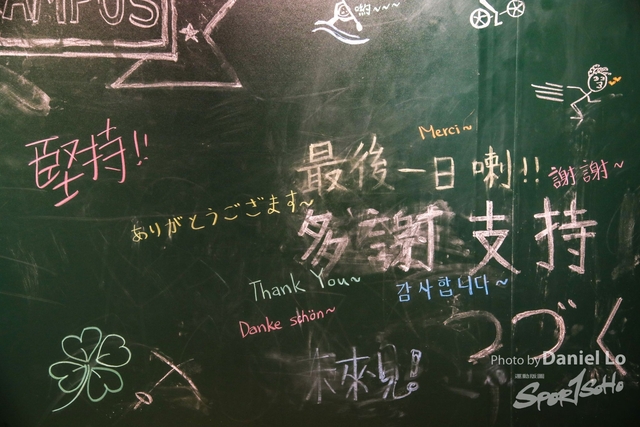 AMPUS
Merci~
堅持!!
最後一日喇!!
謝謝~
ありがとうございます~
多謝支持
Thank You~
감사합니다~
Danke schön~
つづく
未來見!
Photo by Daniel Lo
運動版圖
SPORTSOHO